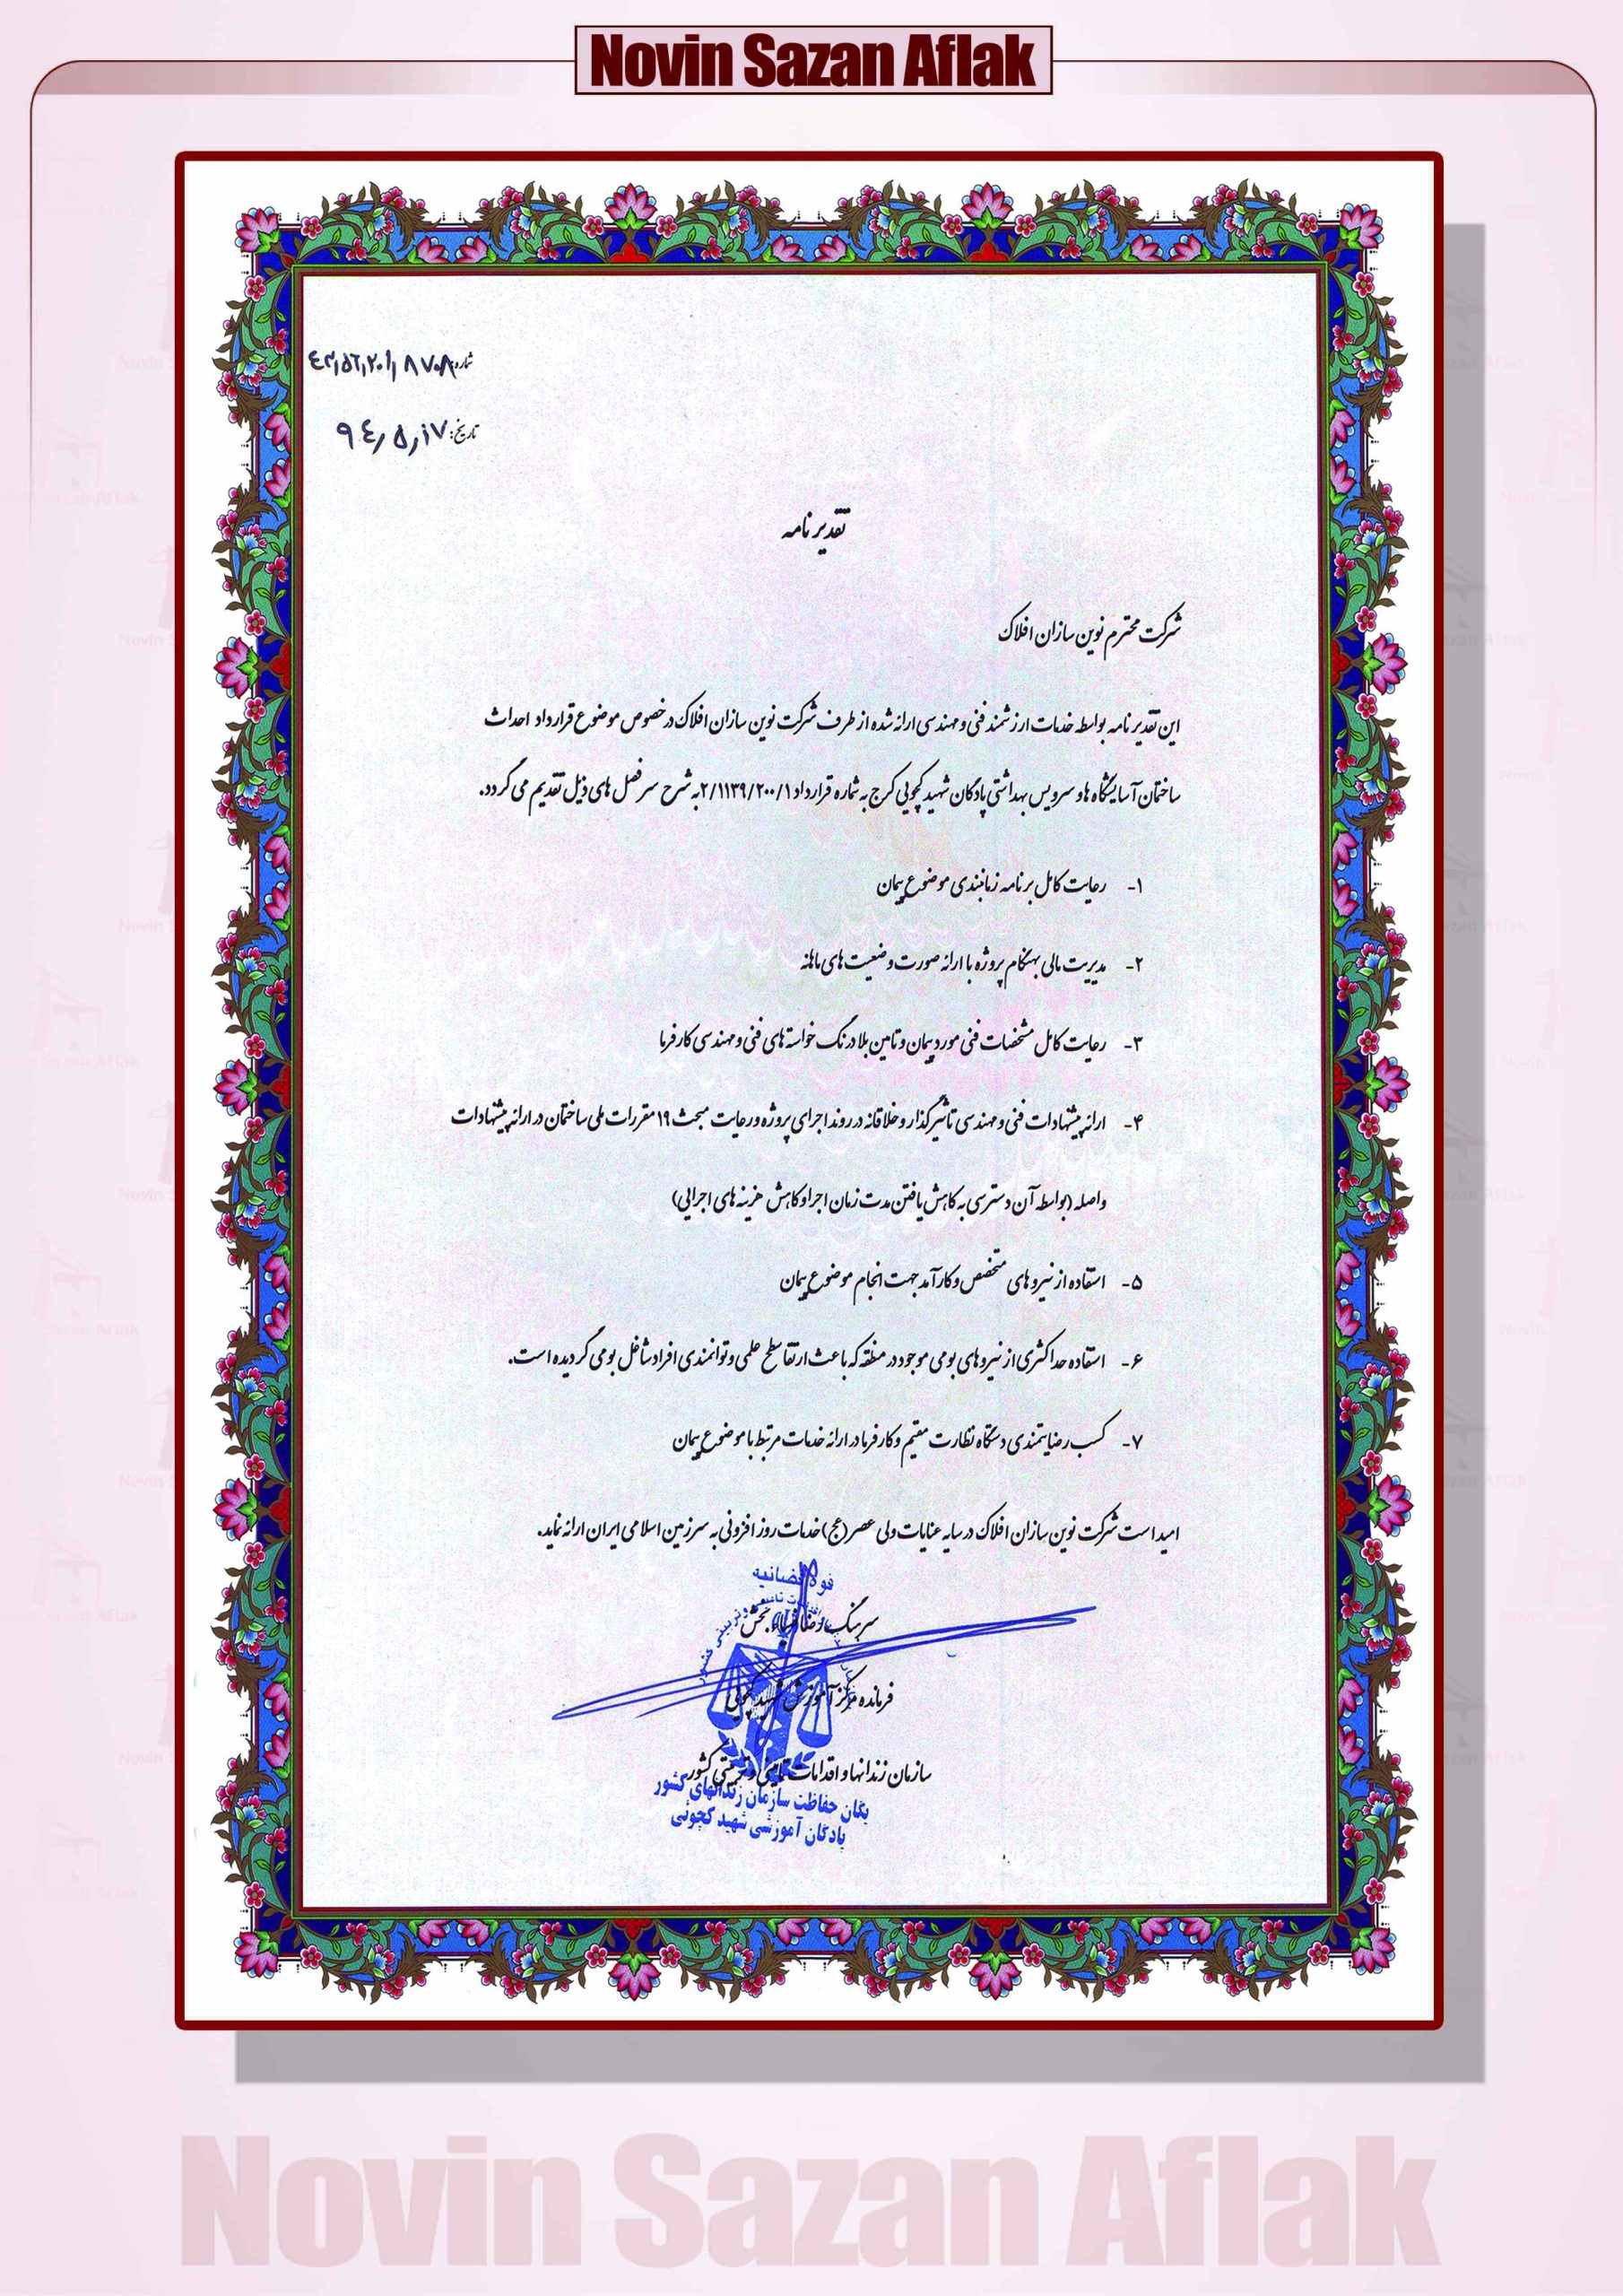 Novin Sazan Aflak
شماره:
تاریخ: ۹۴/۵/۱۷
تقدیر نامه
شرکت محترم نوین سازان افلاک
این تقدیر نامه بواسطه خدمات ارزشمند فنی و مهندسی ارائه شده از طرف شرکت نوین سازان افلاک در خصوص موضوع قرارداد احداث
ساختمان آسایشگاه ها و سرویس بهداشتی پادگان شهید کچویی کرج به شماره قرارداد ۲/۱۱۳۹/۲۰۰/۱ به شرح سر فصل های ذیل تقدیم می گردد.
۱- رعایت کامل برنامه زمانبندی موضوع پیمان
۲- مدیریت مالی بهنگام پروژه با ارائه صورت وضعیت های ماهانه
۳- رعایت کامل مشخصات فنی مورد پیمان و تامین بلادرنگ خواسته های فنی و مهندسی کارفرما
۴- ارائه پیشنهادات فنی و مهندسی تاثیرگذار و خلاقانه در روند اجرای پروژه و رعایت مبحث ۱۹ مقررات ملی ساختمان در ارائه پیشنهادات
واصله (بواسطه آن دسترسی به کاهش یافتن مدت زمان اجرا و کاهش هزینه های اجرایی)
۵- استفاده از نیروهای متخصص و کارآمد جهت انجام موضوع پیمان
۶- استفاده حداکثری از نیروهای بومی موجود در منطقه که باعث ارتقا سطح علمی و توانمندی افراد شاغل بومی گردیده است.
۷- کسب رضایتمندی دستگاه نظارت مقیم و کارفرما در ارائه خدمات مرتبط با موضوع پیمان
امید است شرکت نوین سازان افلاک در سایه عنایات ولی عصر (عج) خدمات روز افزونی به سرزمین اسلامی ایران ارائه نماید.
قوه قضائیه
سرهنگ رضا
فرمانده مرکز آموزش شهید کچویی
سازمان زندانها و اقدامات تامینی و تربیتی کشور
یگان حفاظت سازمان زندانهای کشور
پادگان آموزشی شهید کچوئی
Novin Sazan Aflak